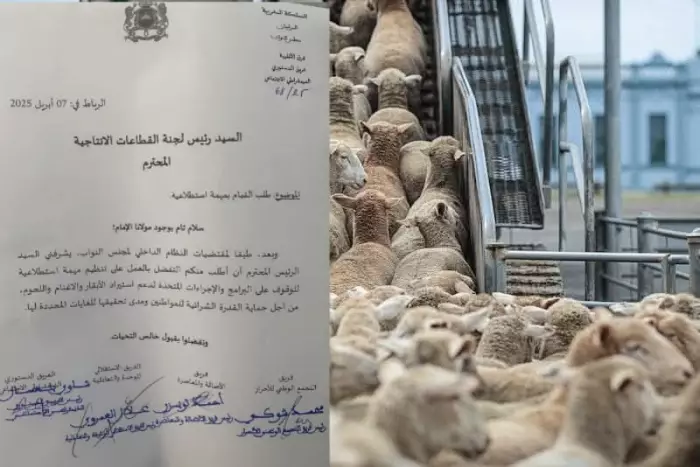 المملكة المغربية
البرلمان
مجلس النواب
فرق الأغلبية
الفريق الدستوري
الديمقراطي الاجتماعي
68/25
الرباط في: 07 أبريل 2025
السيد رئيس لجنة القطاعات الانتاجية
المحترم
الموضوع: طلب القيام بمهمة استطلاعية.
سلام تام بوجود مولانا الإمام؛
وبعد، طبقا لمقتضيات النظام الداخلي لمجلس النواب، يشرفني السيد
الرئيس المحترم أن أطلب منكم التفضل بالعمل على تنظيم مهمة استطلاعية
للوقوف على البرامج والإجراءات المتخذة لدعم استيراد الأبقار والأغنام واللحوم،
من أجل حماية القدرة الشرائية للمواطنين ومدى تحقيقها للغايات المحددة لها.
وتفضلوا بقبول خالص التحيات.
فريق
التجمع الوطني للأحرار
فريق
الأصالة والمعاصرة
الفريق الاستقلالي
للوحدة والتعادلية
الفريق الدستوري